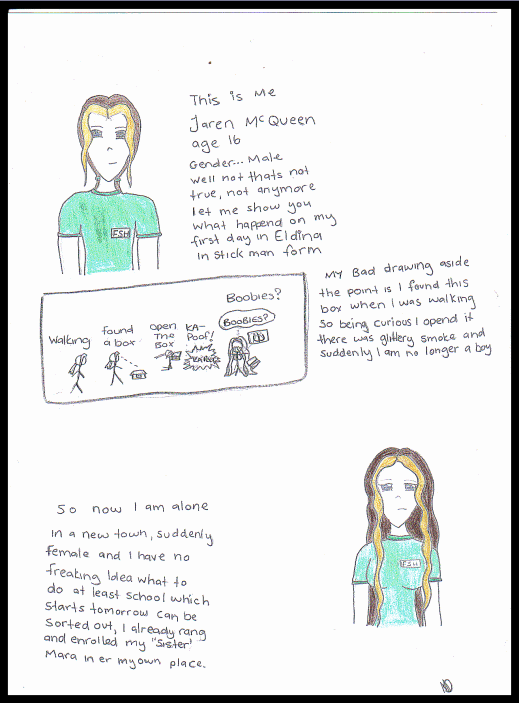 This is Me
Jaren McQueen
age 16
Gender... Male
well not thats not
true, not anymore
let me show you
what happend on my
first day in Eldina
in stick man form
FSH
My Bad drawing aside
the point is I found this
box when I was walking
So being curious I opend it
there was glittery smoke and
suddenly I am no longer a boy
Walking
found
a box
open
The
Box
KA-
Poof!
Boobies?
BOOBIES?
FSH
So now I am alone
in a new town, suddenly
female and I have no
freaking Idea what to
do at least school which
starts tomorrow can be
Sorted out, I already rang
and enrolled my "Sister"
Mara in er my own place.